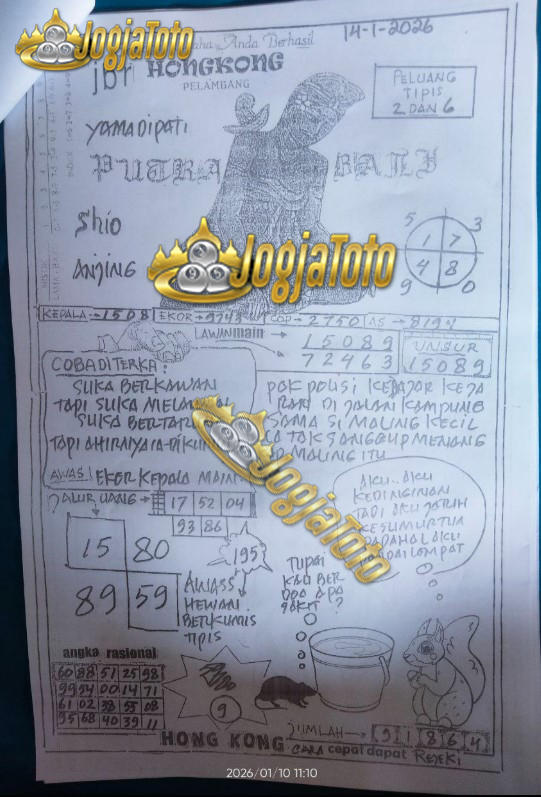 JogjaToto
Anda Berhasil
14-1-2026
jbr HONGKONG
PELAMBANG
PELUANG
TIPIS
2 DAN 6
YAMADIPATI
PUTRA BALI
5 3
1 7
4 8
9 0
Shio
ANJING
JogjaToto
KEPALA → 1508 EKOR → 9743 COP → 2750 AS → 819
LAWAN main → 15089
72463
UNSUR
15089
COBA DI TERKA :
SUKA BERKAWAN
TAPI SUKA
SUKA
TAPI AHIRNYA
PAK POLISI KEJAR KEJA
RAN DI JALAN KAMPUNG
SAMA SI MALING KECIL
TAK SANGGUP MENANG
MALING ITU
AWAS! EKOR KEPALA MAIN
JogjaToto
JALUR UANG → 17 52 04
93 86
AKU.. AKU
KEDINGINAN
TADI AKU JATUH
KESUMUR TUA
PADAHAL AKU
PANDAI LOMPAT
15 80
89 59
195
AWASS
HEWAN
BERKUMIS
TIPIS
TUPAI
KAU BER
DOA APA
SAKIT ?
angka rasional
60 88 51 25 98
99 54 00 14 71
61 02 38 55 08
95 68 40 39 11
9
JUMLAH → 9 1 8 6 4
HONG KONG CARA cepat dapat REJEKI
2026/01/10 11:10